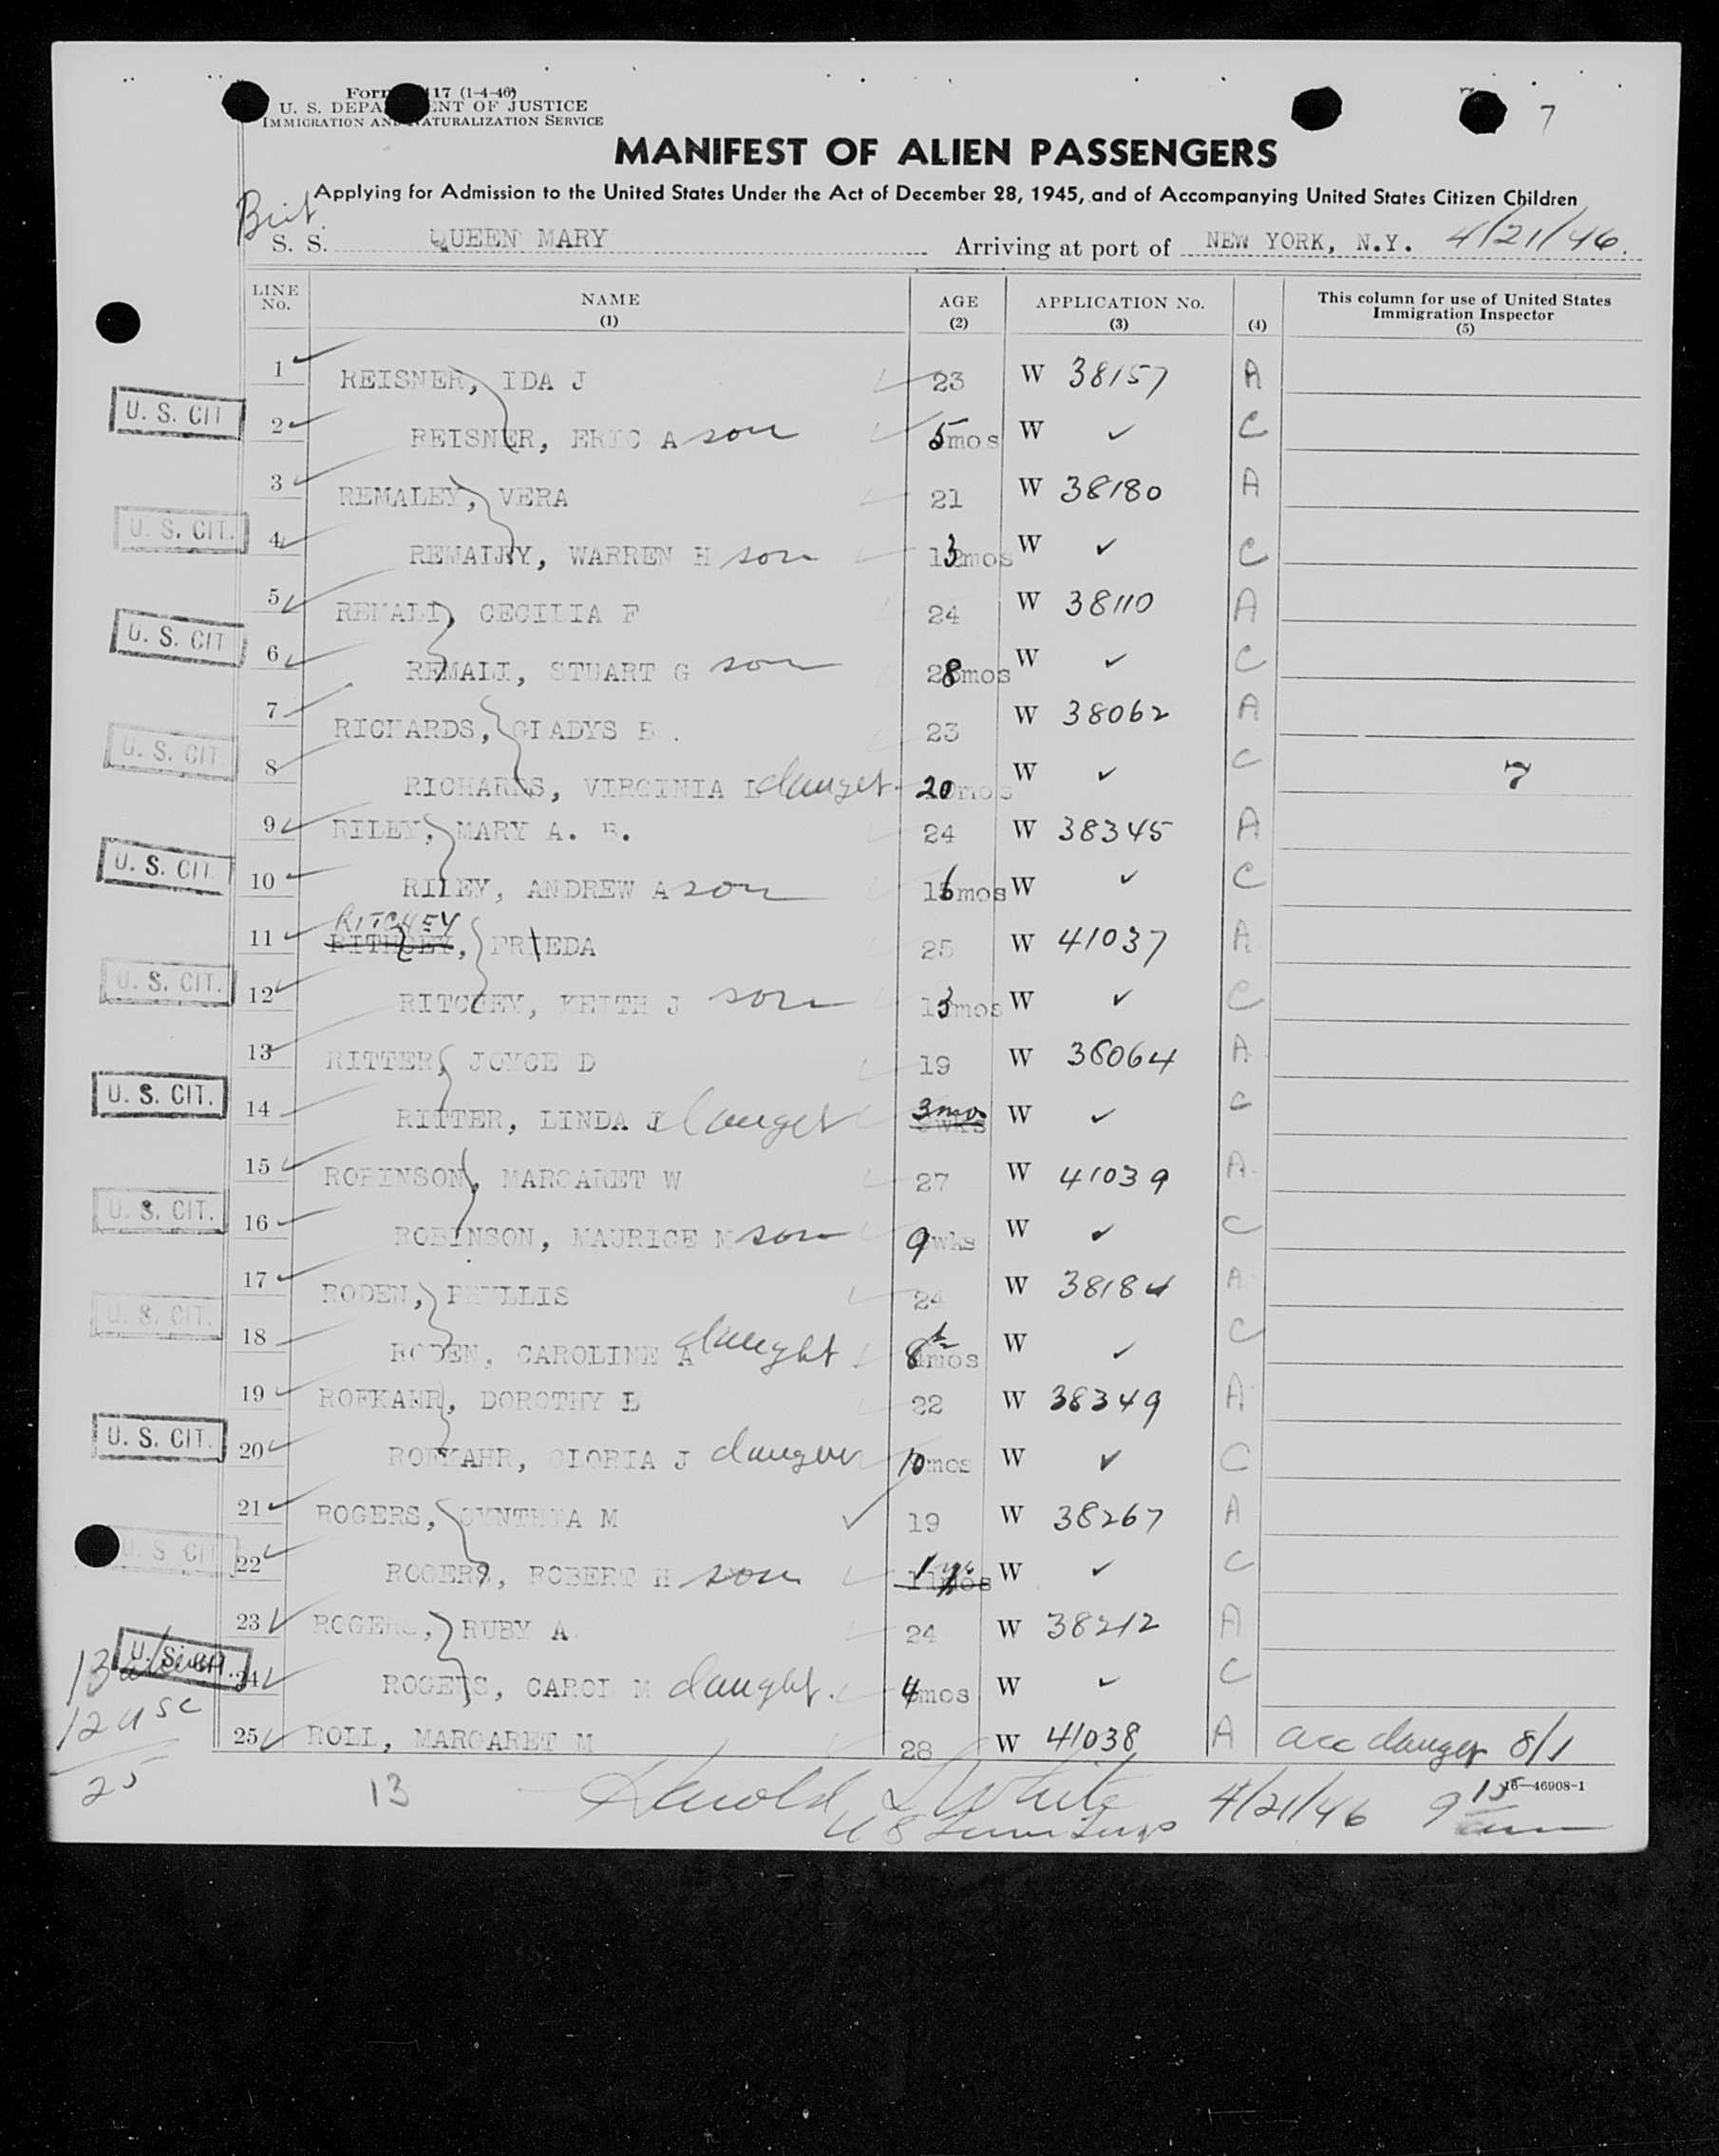 7
Form 117 (1-4-46)
U. S. DEPA ENT OF JUSTICE
IMMIGRATION AND NATURALIZATION SERVICE
MANIFEST OF ALIEN PASSENGERS
Applying for Admission to the United States Under the Act of December 28, 1945, and of Accompanying United States Citizen Children
Brit.
S. S. QUEEN MARY Arriving at port of NEW YORK, N.Y. 4/21/46.
LINE No. NAME (1) AGE (2) APPLICATION No. (3) (4) This column for use of United States Immigration Inspector (5)
1 REISNER, IDA J 23 W 38157 A
U. S. CIT 2 REISNER, ERIC A son 5mos W ✓ C
3 REMALEY, VERA 21 W 38180 A
U. S. CIT. 4 REMALEY, WARREN H son 13mos W ✓ C
5 REMALI, CECILIA F 24 W 38110 A
U. S. CIT 6 REMALI, STUART G son 28mos W ✓ C
7 RICHARDS, GLADYS B. 23 W 38062 A
U. S. CIT. 8 RICHARDS, VIRGINIA L daughter 20mos W ✓ C 7
9 RILEY, MARY A. B. 24 W 38345 A
U. S. CIT. 10 RILEY, ANDREW A son 16mos W ✓ C
RITCHEY
11 RITHCEY, FRIEDA 25 W 41037 A
U. S. CIT. 12 RITCHEY, KEITH J son 13mos W ✓ C
13 RITTER, JOYCE D 19 W 38064 A
U. S. CIT. 14 RITTER, LINDA J daughter 3mos wks W ✓ C
15 ROBINSON, MARGARET W 27 W 41039 A
U. S. CIT. 16 ROBINSON, MAURICE M son 9wks W ✓ C
17 RODEN, PHYLLIS 24 W 38184 A
U. S. CIT. 18 RODEN, CAROLINE A daught 8mos W ✓ C
19 ROFKAHR, DOROTHY L 22 W 38349 A
U. S. CIT. 20 ROFKAHR, GLORIA J daughter 10mos W ✓ C
21 ROGERS, CYNTHIA M 19 W 38267 A
U. S. CIT 22 ROGERS, ROBERT H son 1 yr 11mos W ✓ C
23 ROGERS, RUBY A 24 W 38212 A
U. S. CIT. 24 ROGERS, CAROL M daught. 4mos W ✓ C
25 ROLL, MARGARET M 28 W 41038 A acc daughter 8/1
13 aliens
12 USC
25
13 Harold L White 4/21/46 9 15 am
16—46908-1
U S Imm Insp